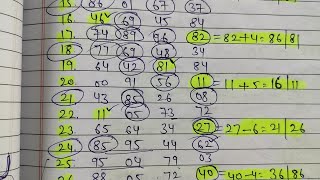 15. 86 01 67 37
16. 46 69 45 84
17. 74 89 96 82 = 82+4=86|81
18. 77 69 48 34
19. 64 42 81
20. 00 91 56 11 = 11+5=16|11
21. 43 85 26 08
22. 11 05 73 72
23. 65 64 34 27 = 27-6=21|26
24. 85 95 44 62
25. 95 04 79 03
40 = 40-4=36|86